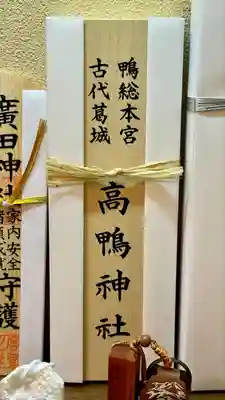 鴨総本宮
古代葛城
高鴨神社
廣田神社
家内安全
守護